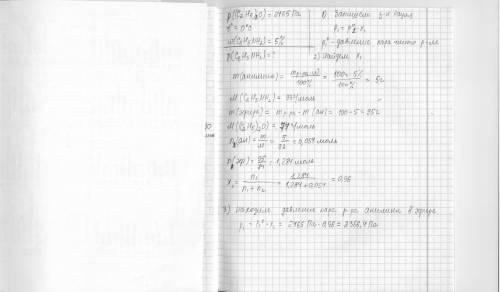 p((C2H5)2O) = 2465 Па
t° = 0°C
ω(C6H5NH2) = 5%
p(C6H5NH2) = ?
1) Запишем з-н Рауля
p1 = p1° · x1
p1° - давление пара чистого р-ля
2) Найдём x1
m(анилина) = = 100г · 5% / 100% = 5г
M(C6H5NH2) = 93г/моль
m(эфира) = m р-ра - m(ан) = 100 - 5 = 95г
M((C2H5)2O) = 74г/моль
n(ан) = m/M = 5/93 = 0,054 моль
n(эф) = 95/74 = 1,284 моль
x1 = n1 / n1 + n2 = 1,284 / 1,284 + 0,054 = 0,96
3) Находим давление пара р-ра анилина в эфире
p1 = p1° · x1 = 2465 Па · 0,96 = 2366,4 Па